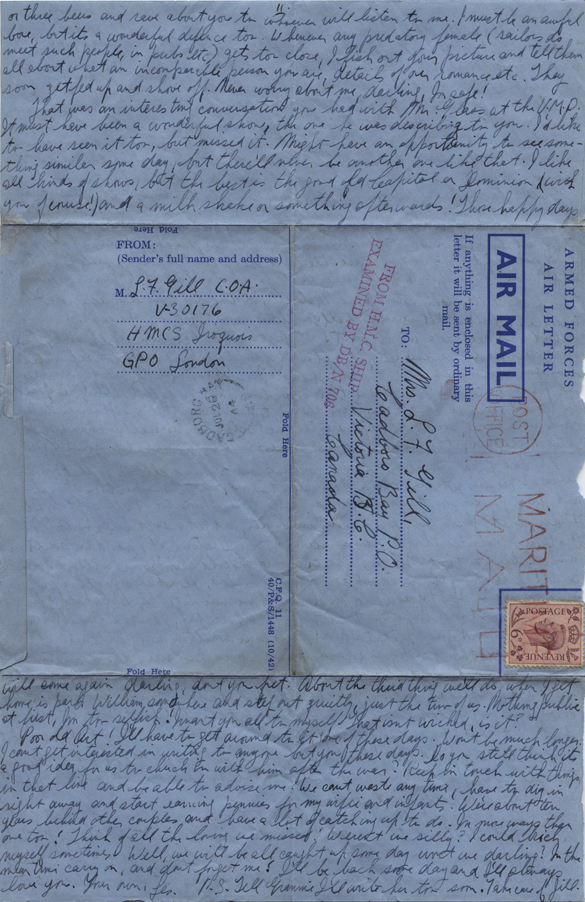 or three beers and rave about you to whoever will listen to me. I must be an awful
bore, but it's a wonderful defence too. Whenever any predatory female (sailors do
meet such people, in pubs etc) gets too close, I fish out your picture and tell them
all about what an incomparable person you are, details of our romance etc. They
soon get fed up and shove off. Never worry about me, darling, I'm safe!
That was an interesting conversation you had with Mr. Glass at the V.M.D.
It must have been a wonderful show, the one he was describing to you. I'd like
to have seen it too, but missed it. Might have an opportunity to see some-
thing similar some day, but there'll never be another one like that. I like
all kinds of shows, but the best is the good old Capitol or Dominion (with
you of course!) and a milk shake or something afterwards! Those happy days
Fold Here
FROM:
(Sender's full name and address)
M. L.F. Gill C.O.A.
V-30176
HMCS Iroquois
GPO London
Fold Here
C.F.Q. 11
40/P&S/1448 (10/42)
Fold Here
ARMED FORCES
AIR LETTER
AIR MAIL
If anything is enclosed in this
letter it will be sent by ordinary
mail.
TO:
Mrs. L. F. Gill,
Cadboro Bay P.O.
Victoria B.C.
Canada
FROM H.M.C. SHIP
EXAMINED BY DB/N
POST
OFFICE
MARIT
MAIL
POSTAGE
6D
REVENUE
will come again darling, don't you fret. About the third thing we'll do, when I get
home is park William somewhere and step out quietly, just the two of us. Nothing public
at first, I'm too selfish. I want you all to myself, that isn't wicked, is it?
Poor old Art! I'll have to get around to it one of these days. Won't be much longer.
I can't get interested in writing to anyone but you these days. Do you still think it
a good idea for us to chuck in with him after the war? Keep in touch with things
in that line and be able to advise me. We can't waste any time, have to dig in
right away and start earning pennies for my wifie and infant. We're about ten
years behind other couples, and have a lot of catching up to do. In more ways than
one too! Think of all the loving we missed! Weren't we silly? I could kick
myself sometimes. Well, we will be all caught up some day won't we darling! In the
mean time carry on, and don't forget me! I'll be back some day and I'll always
love you. Your own, Les. P.S. Tell Grannie I'll write her too soon. Take care of Jill.